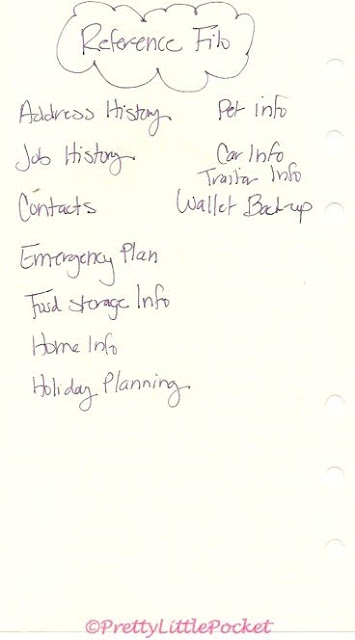 Reference Filo
Address History
Job History
Contacts
Emergency Plan
Food Storage Info
Home Info
Holiday Planning
Pet info
Car Info
Trailor Info
Wallet Back-up
©PrettyLittlePocket